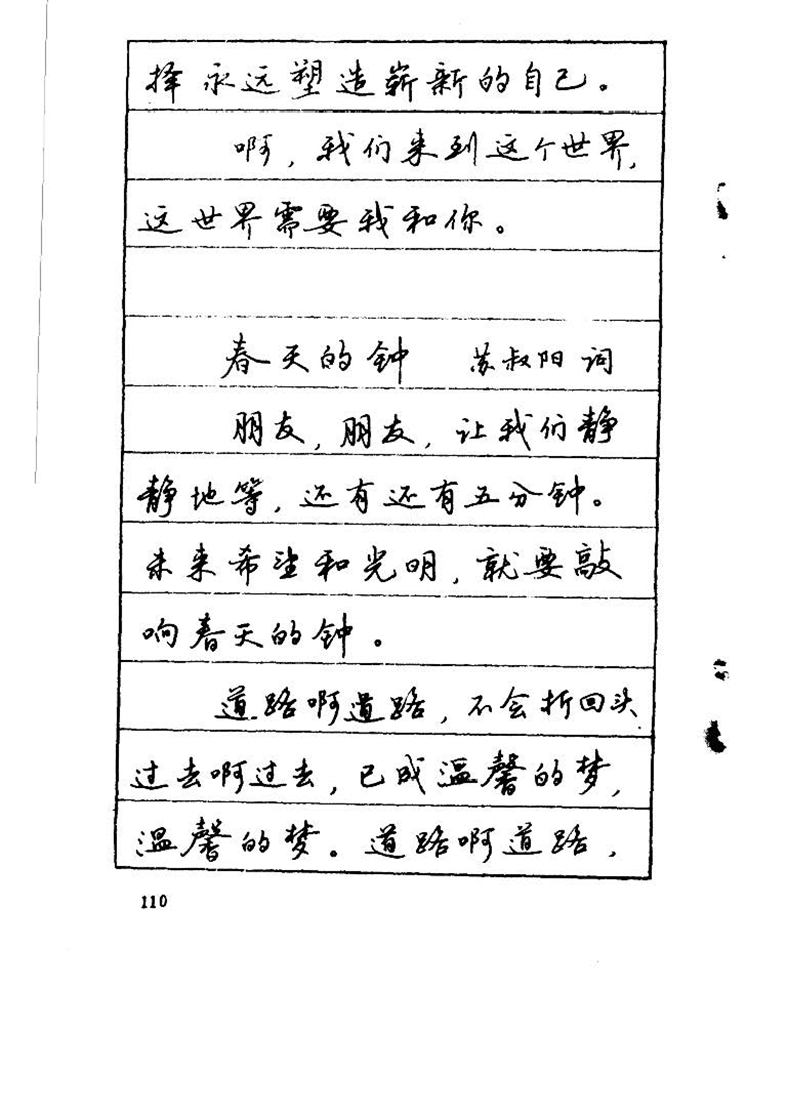 择永远塑造崭新的自己。
啊，我们来到这个世界，
这世界需要我和你。
春天的钟 苏叔阳词
朋友，朋友，让我们静
静地等，还有还有五分钟。
未来希望和光明，就要敲
响春天的钟。
道路啊道路，不会折回头
过去啊过去，已成温馨的梦，
温馨的梦。道路啊道路，
110